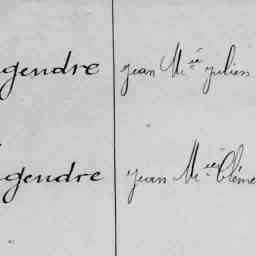 gendre jean M^ie julien
gendre jean M^ie Cléme